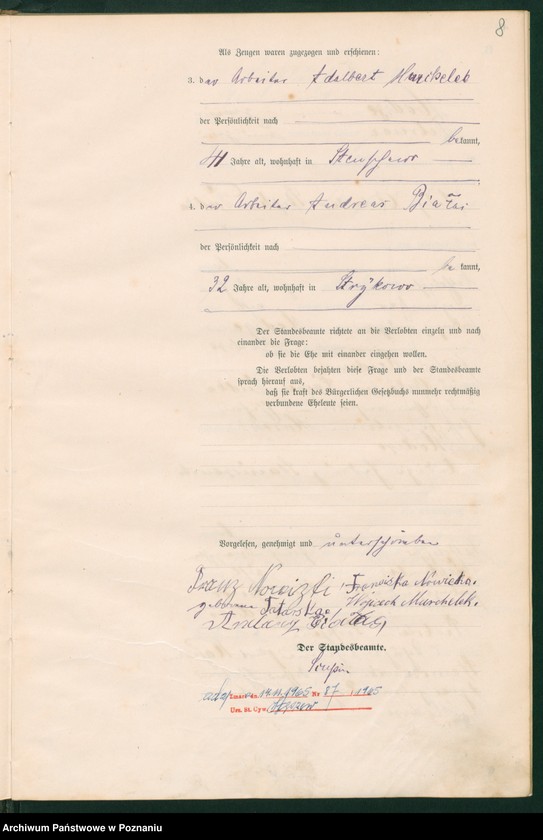 8
Als Zeugen waren zugezogen und erschienen:
3. der Arbeiter Adalbert
der Persönlichkeit nach
bekannt,
41 Jahre alt, wohnhaft in Stenschewo
4. der Arbeiter Andreas
der Persönlichkeit nach
bekannt,
32 Jahre alt, wohnhaft in Strykowo
Der Standesbeamte richtete an die Verlobten einzeln und nach
einander die Frage:
ob sie die Ehe mit einander eingehen wollen.
Die Verlobten bejahten diese Frage und der Standesbeamte
sprach hierauf aus,
daß sie kraft des Bürgerlichen Gesetzbuchs nunmehr rechtmäßig
verbundene Eheleute seien.
Vorgelesen, genehmigt und unterschrieben
Franz Franciska Nowicka.
geborene Wojciech Murchelek.
Der Standesbeamte.
14.11.1965 Nr 87 1965
Urz. St. Cyw.
Archiwum Państwowe w Poznaniu